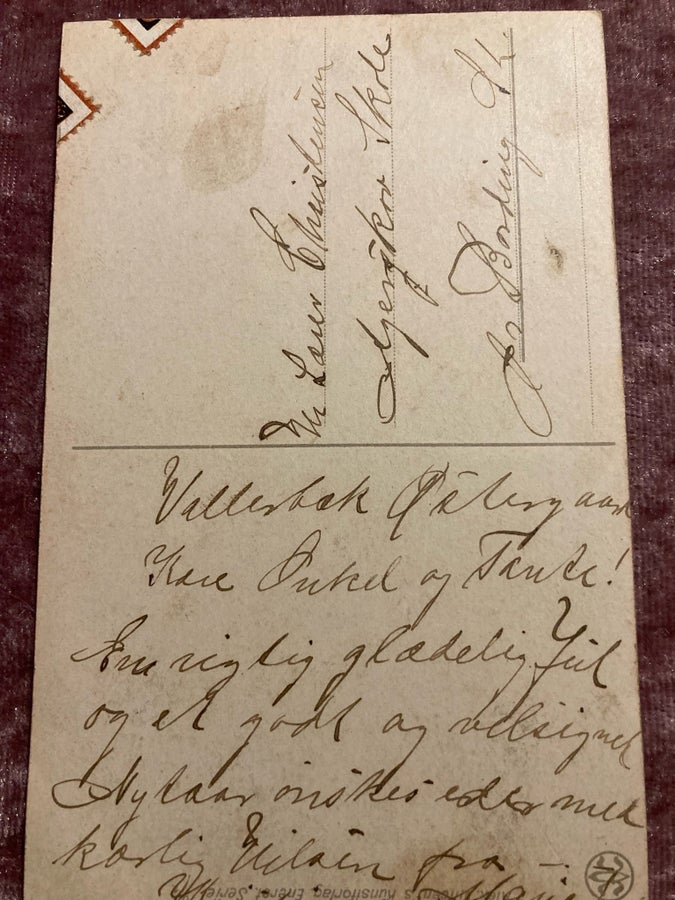 Hr Laur Christensen
Skole
pr Bording St.
Vallerbæk Østergaard
Kære Onkel og Tante!
En rigtig glædelig Jul
og et godt og velsignet
Nytaar ønskes eder med
kærlig Hilsen fra –
s Kunstforlag, Eneret. Serie